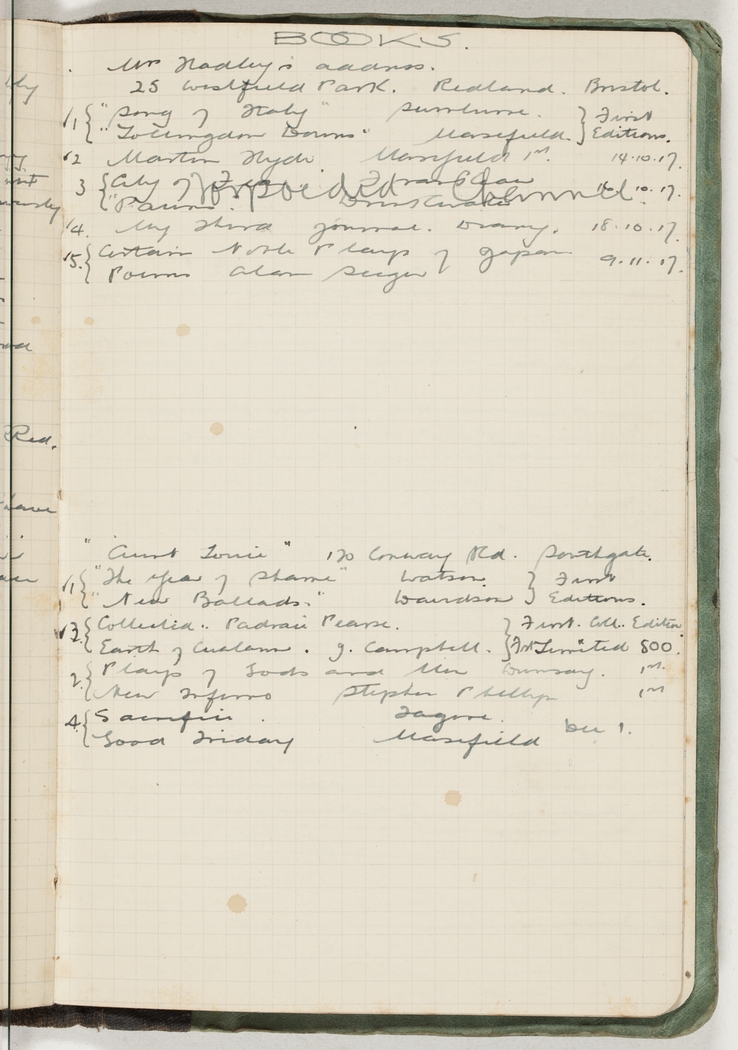 BOOKS.
Mr Hadley's address.
25 Westfield Park. Redland. Bristol.
/1 { "Song of Italy" Swinburne. } First
"Lollingdon Downs" Masefield. } Editions.
/2 Martin Hyde Masefield 1st. 14.10.17.
3 { City of 10.17.
Torpedoed Channel.
"Pawns. Drinkwater
/4. My Third Journal. Drang. 18.10.17.
/5. { Certain Noble Plays of Japan 9.11.17.
Poems Alan Seeger
"Aunt Louie" 170 Conway Rd. Southgate.
/1 { "The Year of Shame" Watson. } First
"New Ballads." Davidson } Editions.
/3. { Collected.. Padraic Pearse. } First. Coll. Edition
Earth of Cualann. J. Campbell. } 1st Limited 500.
2. { Plays of Gods and Men Dunsany. 1st.
New Inferno Stephen Phillips 1st
4. { Sacrifice. Tagore. Dec 1.
Good Friday Masefield